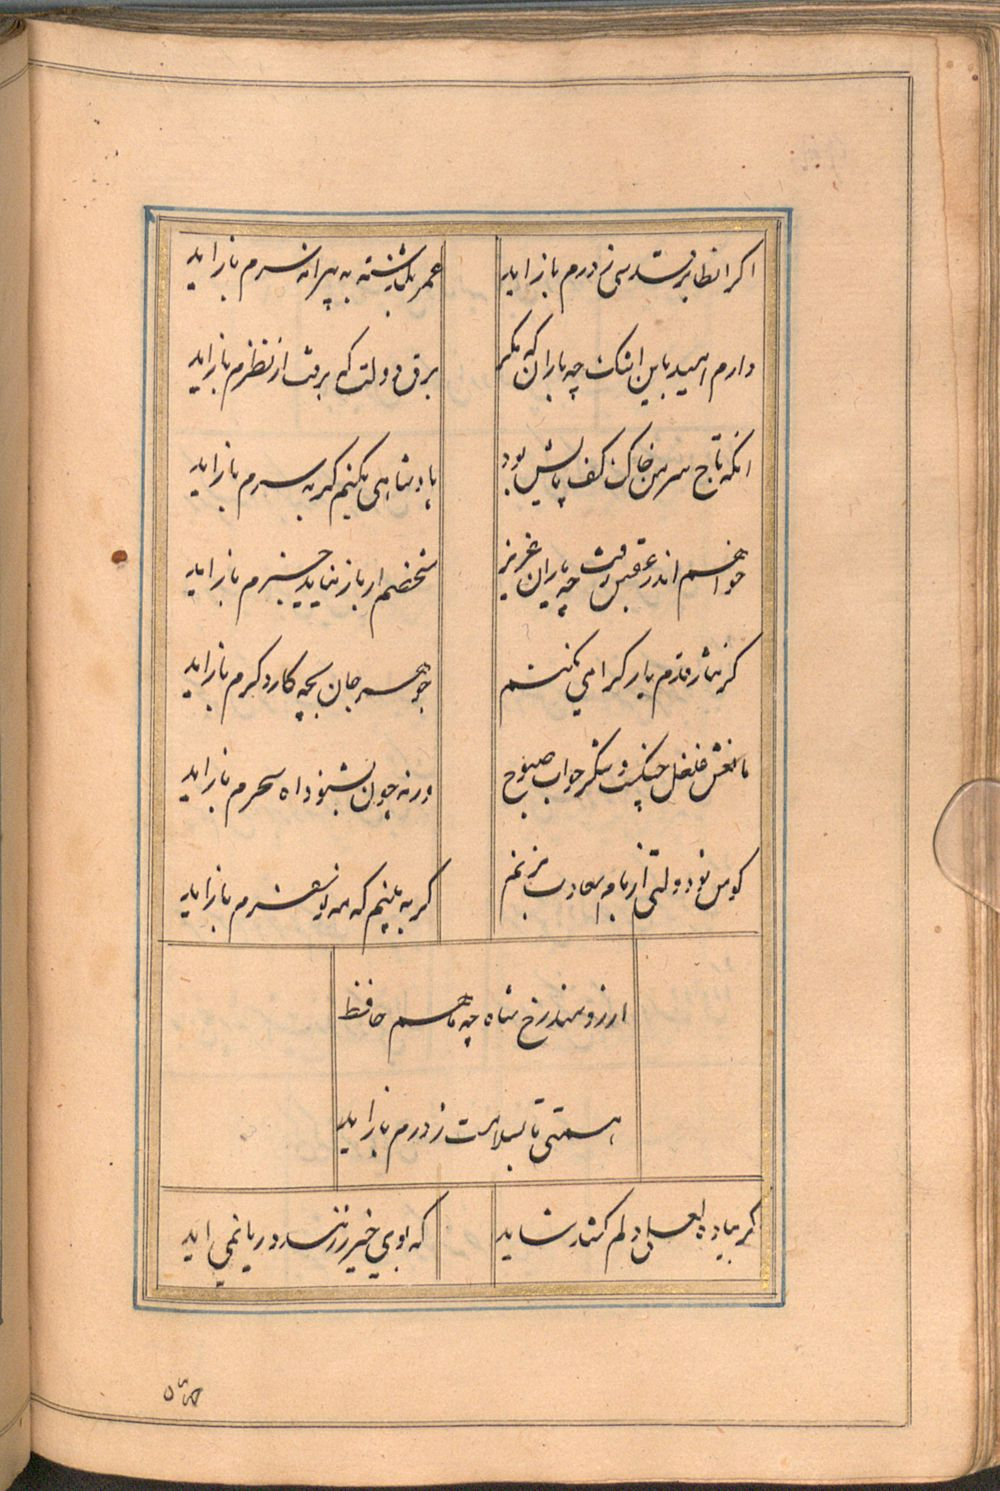 اکر انطایر قدسی ز درم بازاید عمر بگذشته به پیرانه سرم بازاید
دارم امید باین اشک چه باران که مکر برق دولت که برفت از نظرم بازاید
انکه تاج سر من خاک کف پایش بود پادشاهی بکنم کر به سرم بازاید
خواهم اندر عقبش رفت چه یاران عزیز شخصم ار باز نیاید خبرم بازاید
کر نثار قدم یار کرامی نکنم جوهر جان بچه کار دکرم بازاید
مانعش غلغل چنکست و شکر خواب صبوح ورنه چون بشنود اه سحرم بازاید
کوس نو دولتی از بام سعادت بزنم کر به بینم که مه نو سفرم بازاید
ارزومند رخ شاه چه ماهم حافظ
همتی تا بسلامت ز درم بازاید
کر بباده لعلی دلم کشد شاید که بوی خیر ز زهد ریا نمی اید